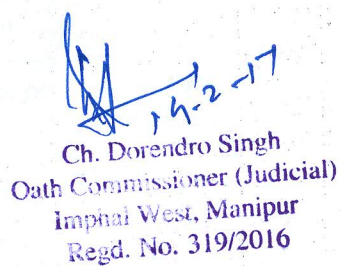 Ch. Dorendro Singh
Oath Commissioner (Judicial)
Imphal West, Manipur
Regd. No. 319/2016